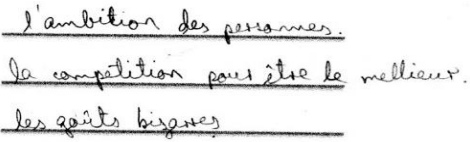 l'ambition des personnes.
la compétition pour être le mellieur.
les goûts bizarres